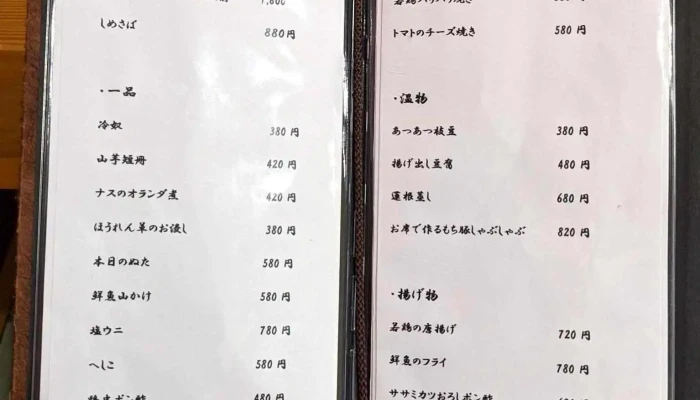 しめさば 880円
・一品
冷奴 380円
山芋短冊 420円
ナスのオランダ煮 420円
ほうれん草のお浸し 380円
本日のぬた 580円
鮮魚山かけ 580円
塩ウニ 780円
へしこ 580円
ポン酢 480円
トマトのチーズ焼き 580円
・温物
あつあつ枝豆 380円
揚げ出し豆腐 480円
蓮根蒸し 680円
お席で作るもち豚しゃぶしゃぶ 820円
・揚げ物
若鶏の唐揚げ 720円
鮮魚のフライ 780円
ササミカツおろしポン酢